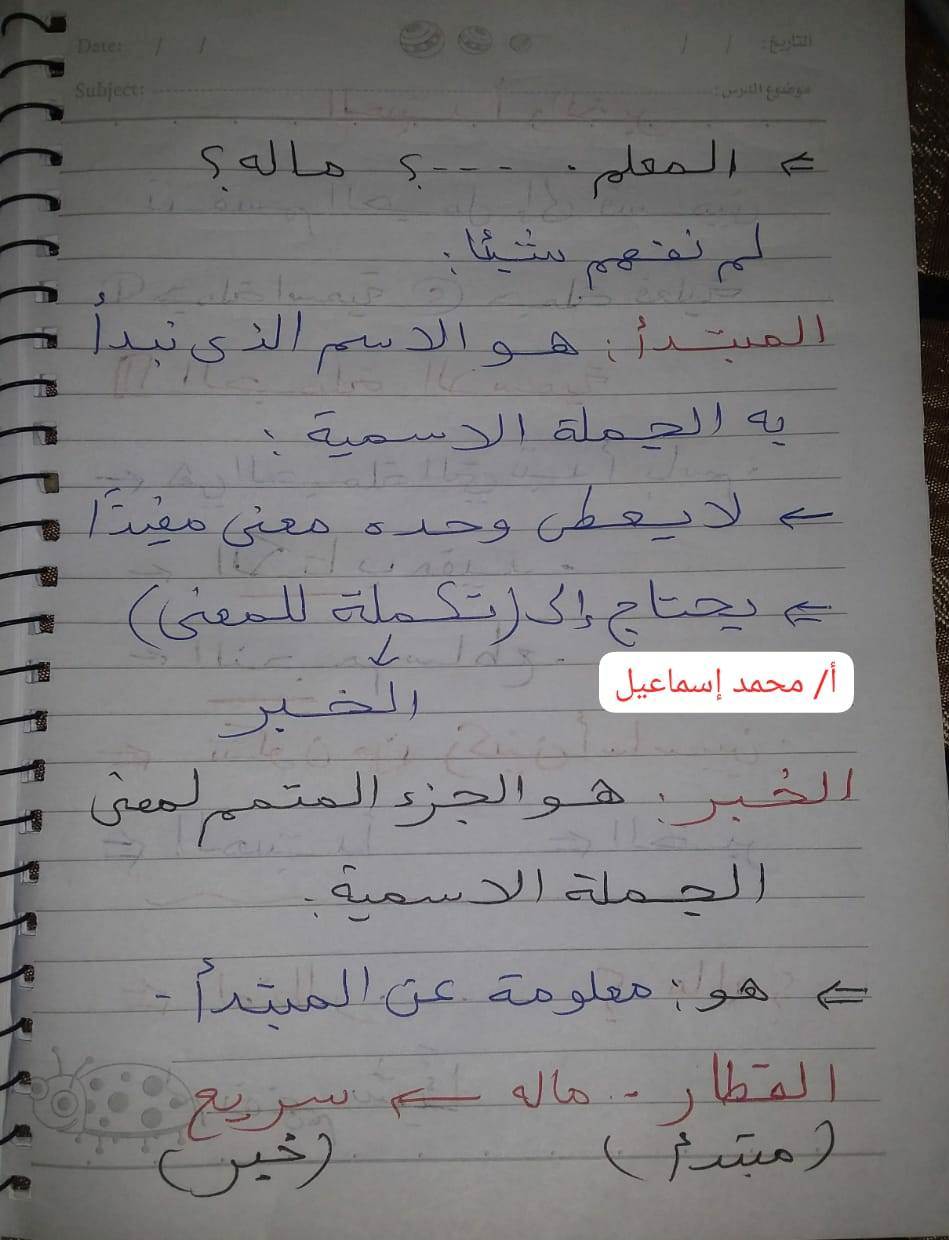 Date: / / التاريخ: / /
Subject: موضوع الدرس:
⇐ المعلم. ---؟ ماله؟
لم نفهم شيئا.
المبتدأ: هو الاسم الذى نبدأ
به الجملة الاسمية.
← لا يعطى وحده معنى مفيدًا
⇐ يحتاج إلى (تكملة للمعنى)
↓
أ/ محمد إسماعيل
الخبر
الخبر: هو الجزء المتمم لمعنى
الجملة الاسمية.
⇐ هو: معلومة عن المبتدأ -
القطار - ماله ← سريع
(مبتدأ) (خبر)